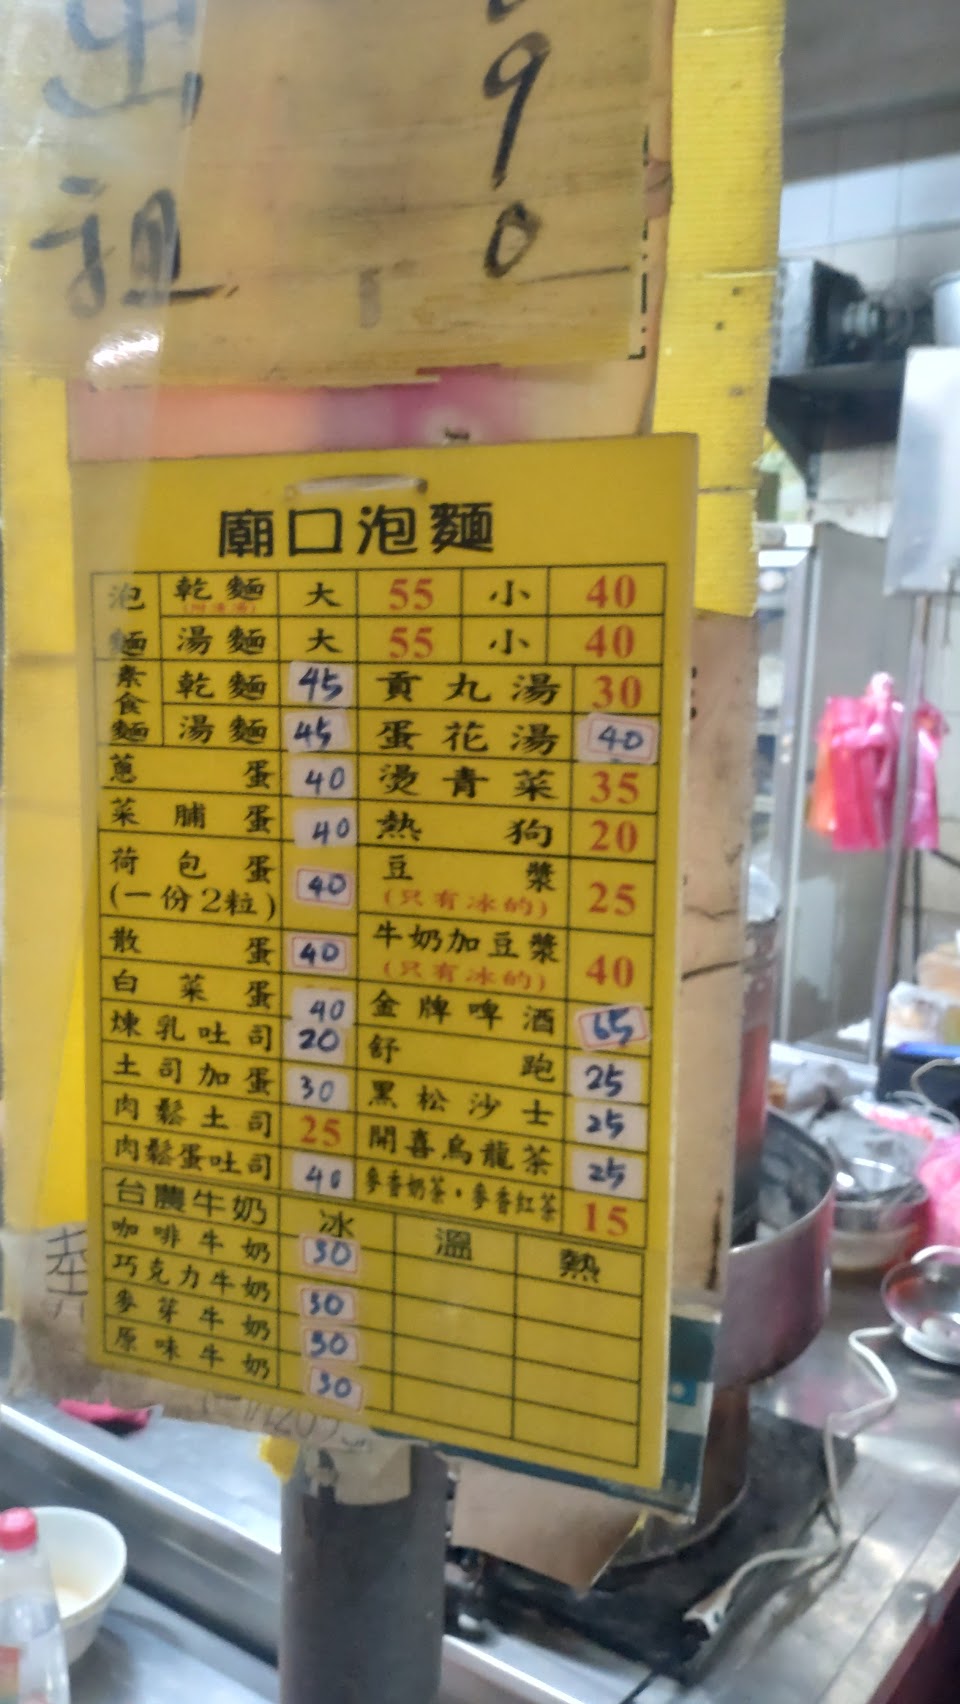 出 90
租
廟口泡麵
泡麵 乾麵 大 55 小 40
湯麵 大 55 小 40
素食麵 乾麵 45 貢丸湯 30
湯麵 45 蛋花湯 40
蔥蛋 40 燙青菜 35
菜脯蛋 40 熱狗 20
荷包蛋 (一份2粒) 40 豆漿 (只有冰的) 25
散蛋 40 牛奶加豆漿 (只有冰的) 40
白菜蛋 40 金牌啤酒 65
煉乳吐司 20 舒跑 25
土司加蛋 30 黑松沙士 25
肉鬆土司 25 開喜烏龍茶 25
肉鬆蛋吐司 40 麥香奶茶,麥香紅茶 15
台農牛奶 冰 溫 熱
咖啡牛奶 30
巧克力牛奶 30
麥芽牛奶 30
原味牛奶 30